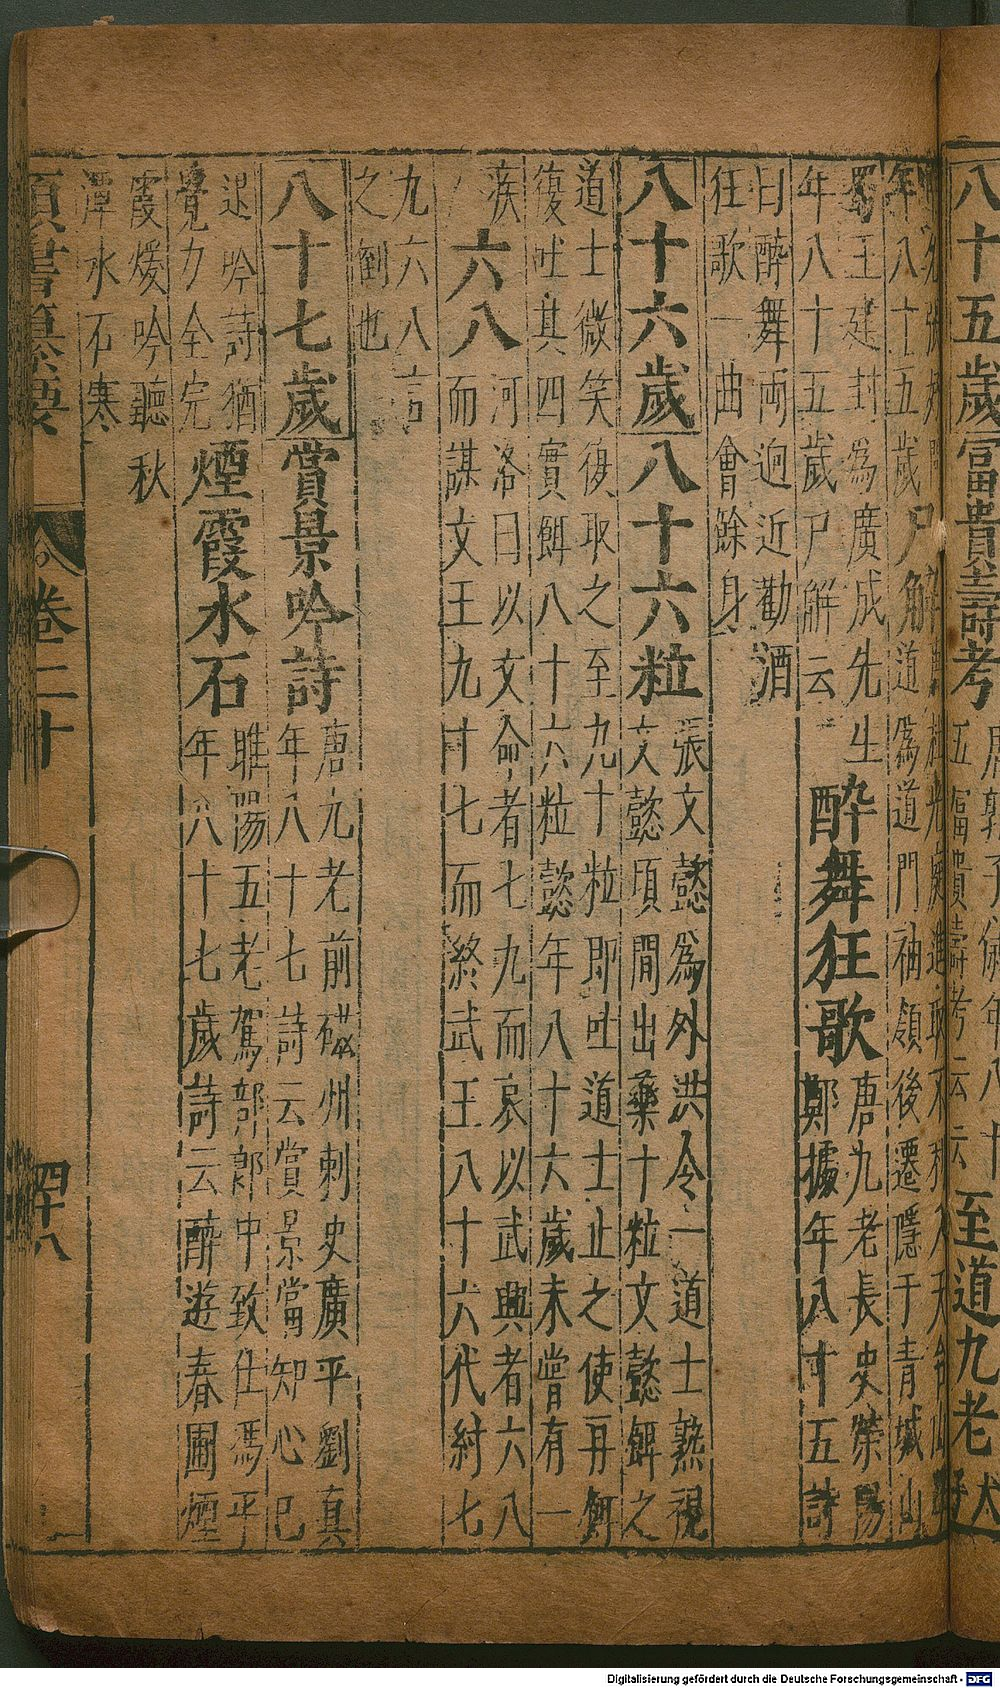 八十五歲富貴壽考
唐郭子儀年八十
五富貴壽考云云
至道九老
年八十五歲
尸解
杜光庭進取不利入天台山
道爲道門袖領後遷隱于青城山
蜀王建封爲廣成先生
年八十五歲尸解云
醉舞狂歌
唐九老長史滎陽
鄭據年八十五詩
曰醉舞兩迴近勸酒
狂歌一曲會餘身
八十六歲八十六粒
張文懿爲外洪令一道士熟視
文懿頃間出藥十粒文懿餌之
道士微笑復取之至九十粒即吐道士止之使再餌
復吐其四實餌八十六粒懿年八十六歲未嘗有一
疾
六八
河洛曰以文命者七九而衰以武興者六八
而謀文王九十七而終武王八十六代紂七
九六八言
之倒也
八十七歲賞景吟詩
唐九老前磁州刺史廣平劉真
年八十七詩云賞景嘗知心已
退吟詩猶
覺力全完
煙霞水石
睢陽五老駕部郎中致仕馮平
年八十七歲詩云醉遊春圃煙
霞煖吟聽秋
潭水石寒
類書纂要
卷二十
四十八
Digitalisierung gefördert durch die Deutsche Forschungsgemeinschaft - DFG